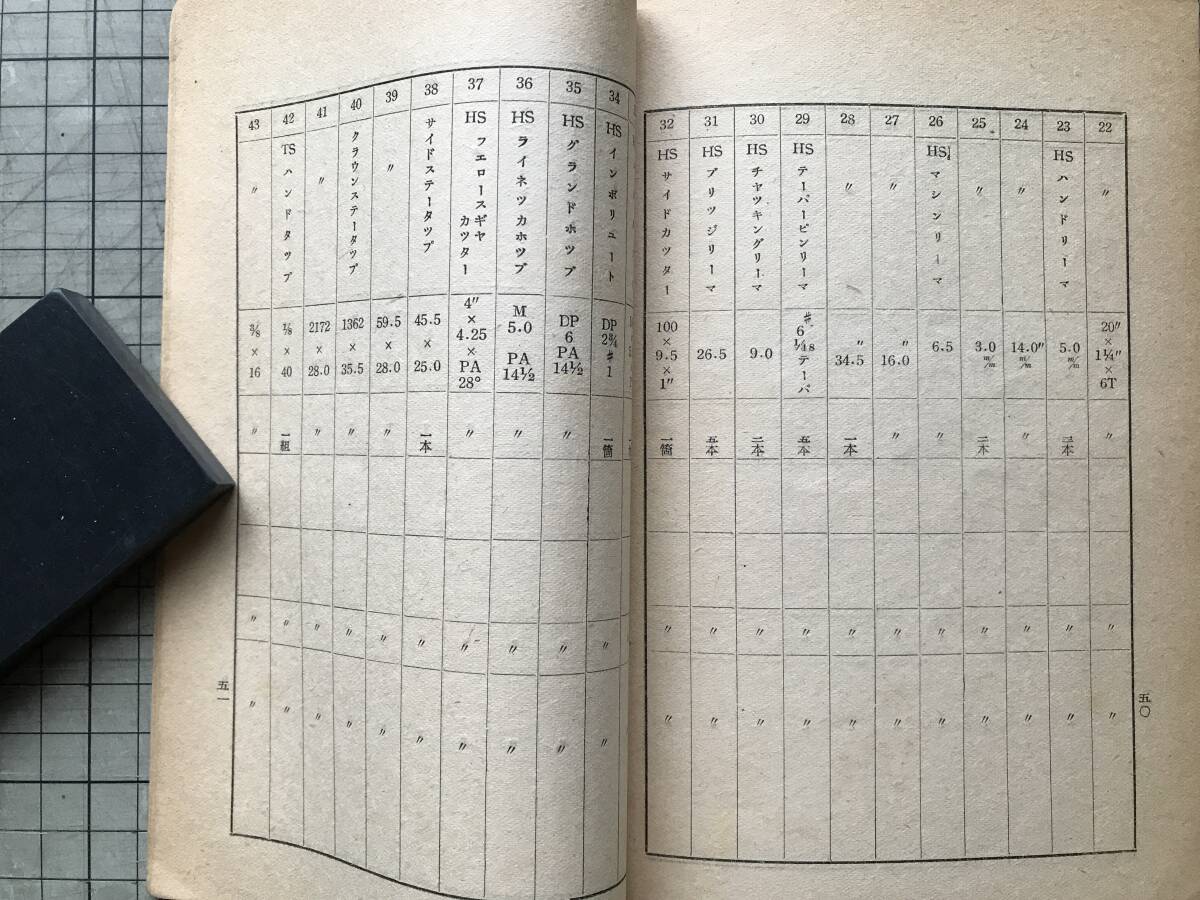 22 〃 20″×1¼″×6T 〃 〃
23 HS ハンドリーマ 5.0 m/m 三本 〃 〃
24 〃 14.0″ m/m 〃 〃 〃
25 〃 3.0 m/m 二本 〃 〃
26 マシンリーマ 6.5 〃 〃 〃
27 〃 16.0 〃 〃 〃
28 〃 34.5 一本 〃 〃
29 HS テーパーピンリーマ ♯6 1/48テーパ 五本 〃 〃
30 HS チヤツキングリーマ 9.0 二本 〃 〃
31 HS ブリツジリーマ 26.5 五本 〃 〃
32 HS サイドカツター 100×9.5×1″ 一箇 〃 〃
五〇
34 HS インボリユート DP 2¾ ♯1 一箇 〃 〃
35 HS グランドホツブ DP 6 PA 14½ 〃 〃 〃
36 HS ライネツカホツブ M 5.0 PA 14½ 〃 〃 〃
37 HS フエロースギヤカツター 4″×4.25×PA 28° 〃 〃 〃
38 サイドステータツプ 45.5×25.0 一本 〃 〃
39 〃 59.5×28.0 〃 〃 〃
40 クラウンステータツプ 1362×35.5 〃 〃 〃
41 〃 2172×28.0 〃 〃 〃
42 TS ハンドタツプ ⅛×40 一組 〃 〃
43 〃 ⅜×16 〃 〃 〃
五一